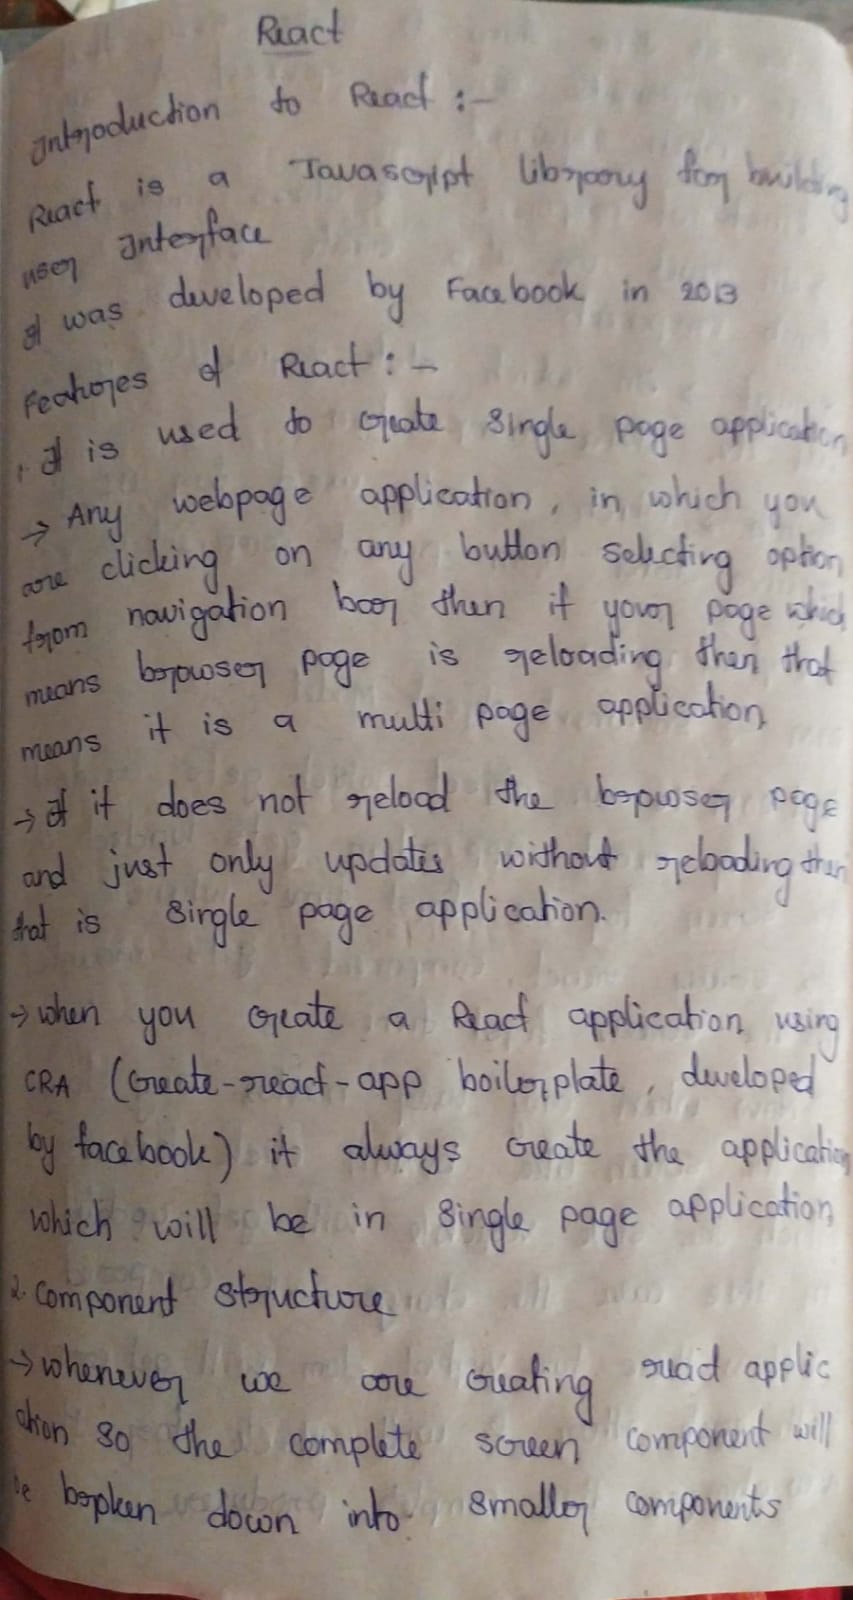 React
Introduction to React :-
React is a Javascript library for building
user Interface
It was developed by Facebook in 2013
Features of React : -
1. It is used to create single page application
→ Any webpage application, in which you
are clicking on any button selecting option
from navigation bar then if your page which
means browser page is reloading then that
means it is a multi page application
→ If it does not reload the browser page
and just only updates without reloading then
that is single page application.
→ when you create a React application using
CRA (create-react-app boilerplate, developed
by facebook) it always create the application
which will be in single page application
2. Component structure
→ whenever we are creating react applic
ation so the complete screen component will
be broken down into smaller components